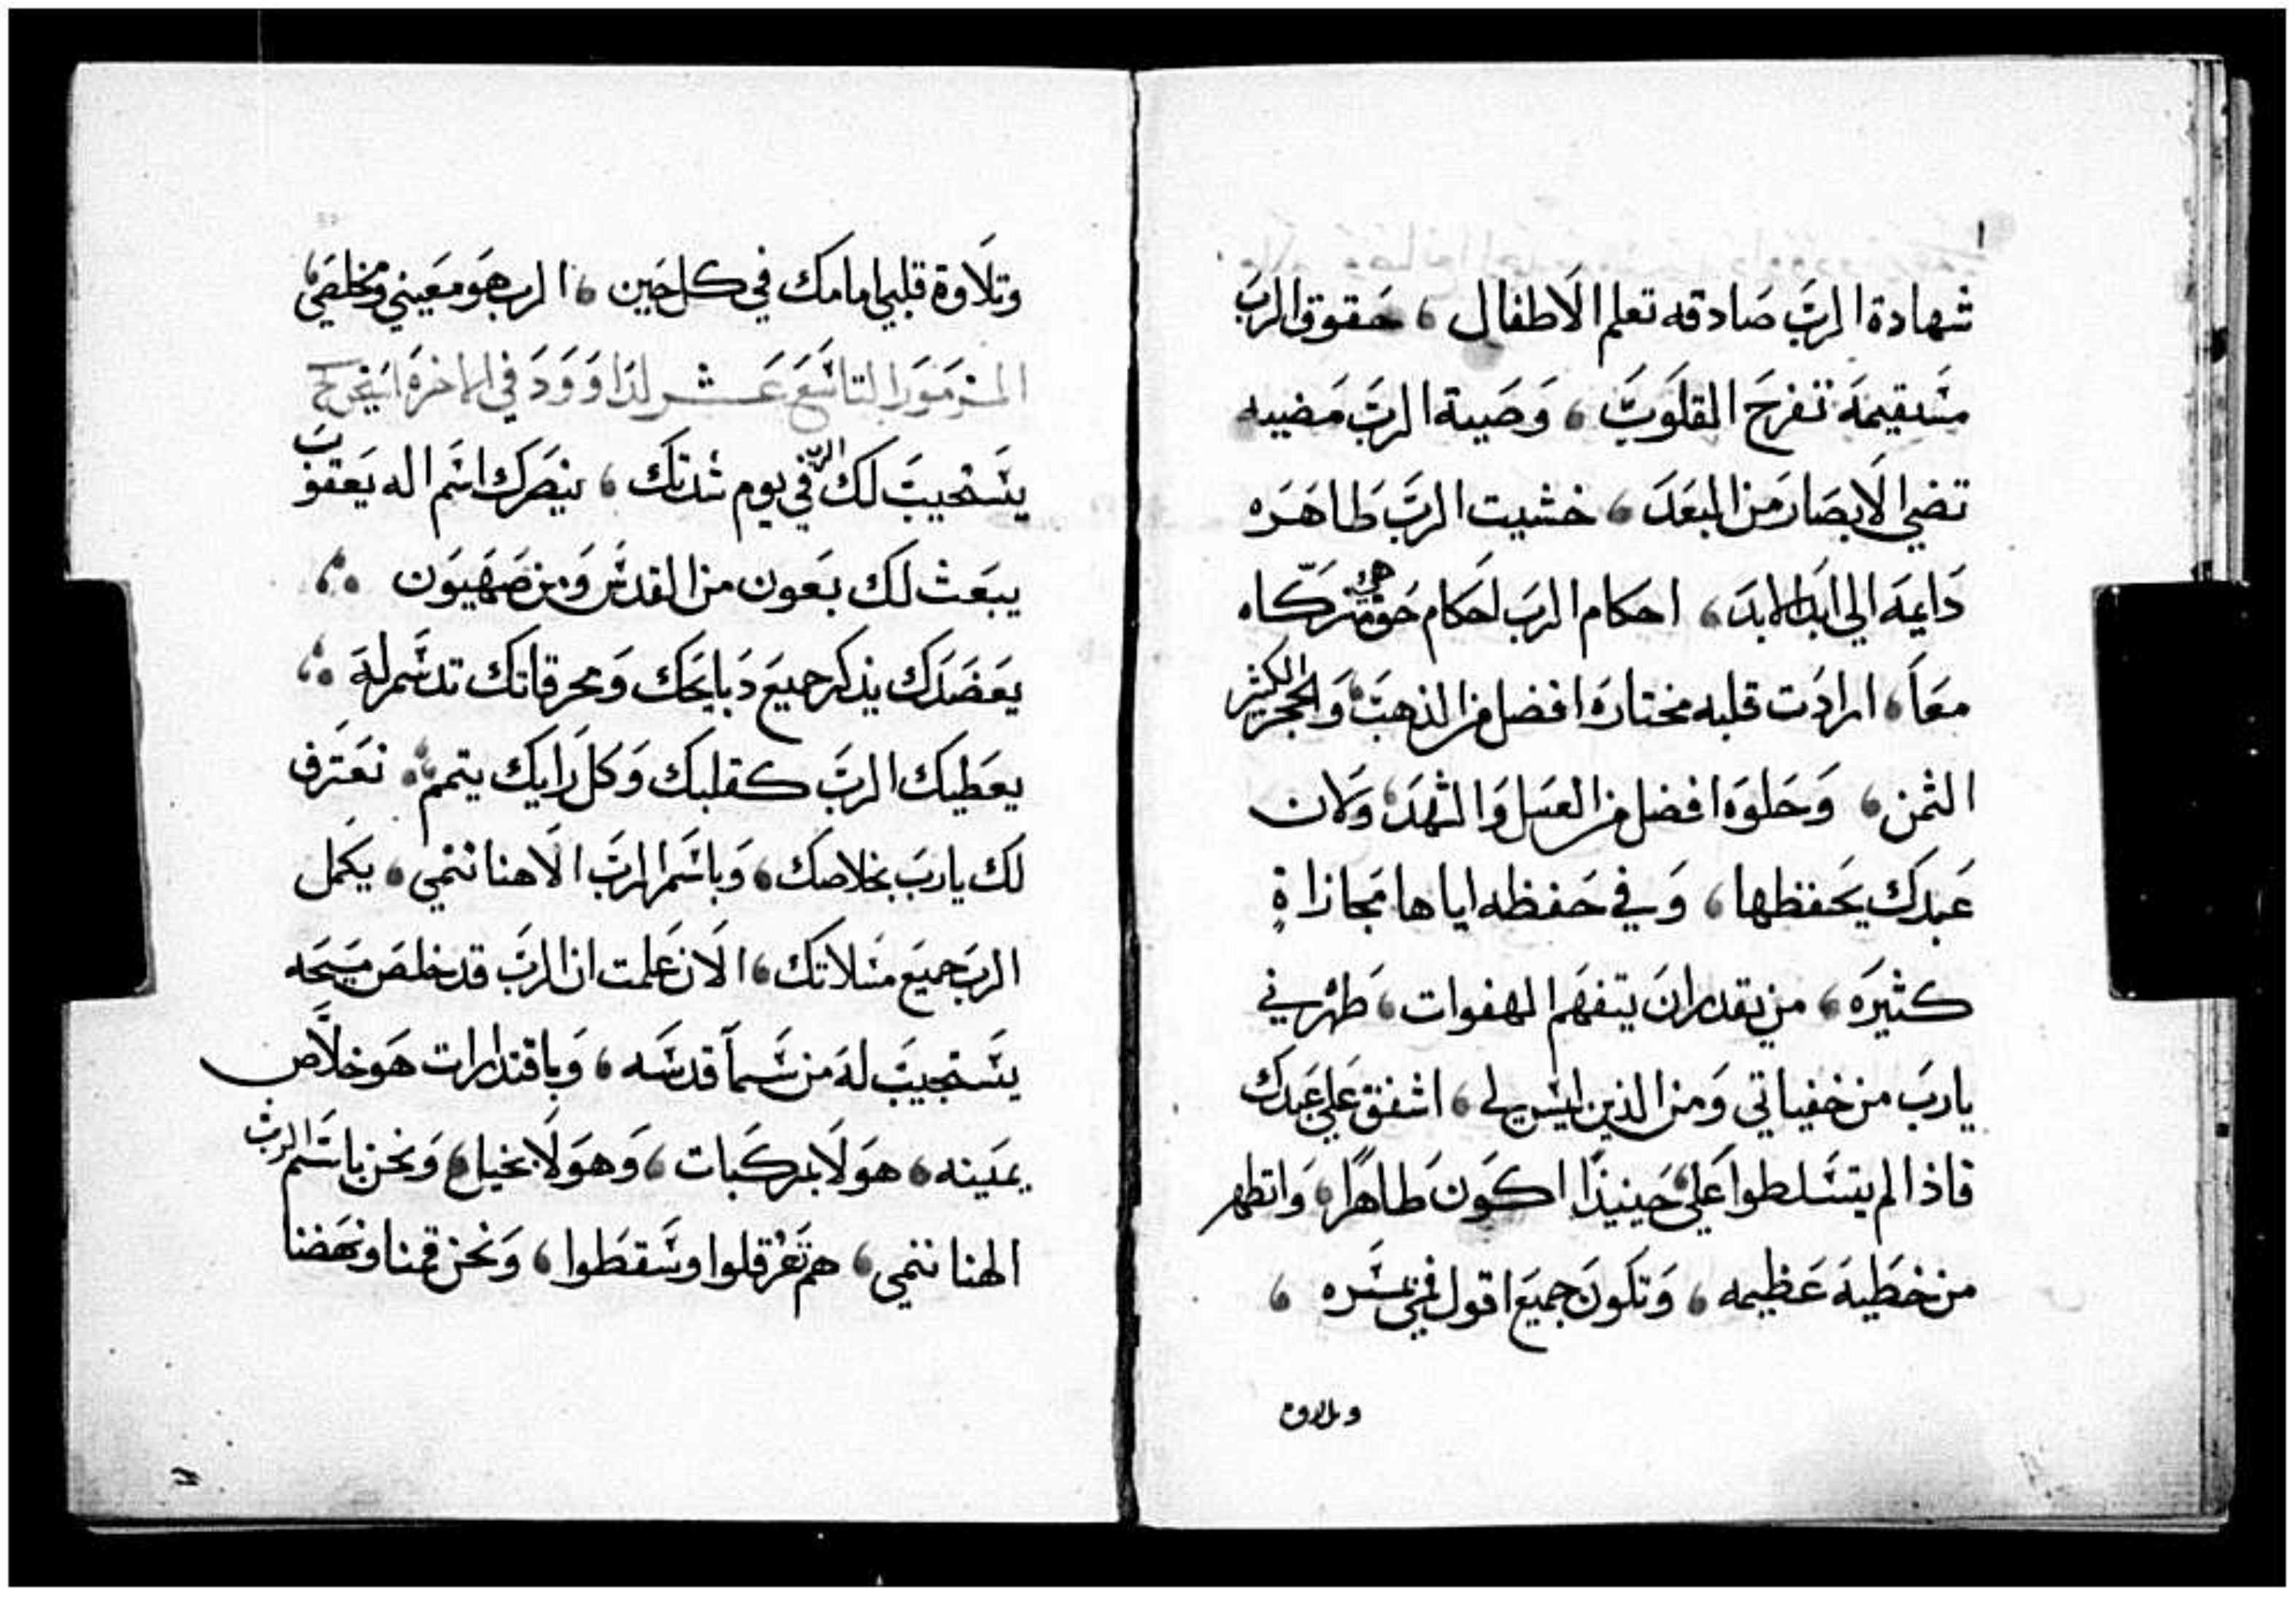 شهادة الربَّ صَادقه تعلم الاطفال ، حَقوق الربَّ
مسَتقيمَة تفرحَ القلوَبَ ، وَصَيهة الربَّ مَضييه
تضي الابصَار مَن البعَدَ ، خشيت الربَّ طَاهَره
دَايمَة الي ابدَ الابدَ ، احكام الربَ احَكام حَق مَزكّاه
معَاً ، ارادَت قلبه مختارَة افضل من الذهبَ وَالحجر الكثير
الثمن ، وَحَلوَه افضل من العسَل وَالشهدَ ، وَلان
عَبدَك يحَفظها ، وَفي حَفظه اياها مَجازاةٍ
كثيرَه ، من يقدر ان يتفهَم الهفوات ، طَهرني
يا ربَ من خفياتي وَمن الذين ليسَ لي ، اشفق عَلي عَبدَك
فاذا لم يتسَلطوا عَلي حَينيذًا اكوَن طَاهرًا ، وَاتطهر
من خطَية عَظيمه ، وَتكون جميعَ اقول فمي بمسَره ،
وتلاوة
وتلاوة قلبي امامك في كل حَين ، الرب هوَ معَيني ومخلصَي
المزموَر التاسَع عَشر لدَاوَودَ في الاخرة
يسَتجيبَ لك الرب في يوم شدتك ، ينصَرك اسَم اله يَعقوبَ
يبعَث لك بَعون من القدسَ وَمن صَهَيوَن
يعَضَدَك يذكر جميعَ دَبايحَك وَمحرقاتك تدسَم لهَ
يعَطيَك الربَ كقلبك وَكل رَايَك يتمم ، نعَترف
لك يا ربَ بخلاصك ، وَباسَم الربَ الاهنا ننمي ، يكَمل
الربَ جميَع مسَلاتك ، الان عَلمت ان الربَ قد خلصَ مسَيحَه
يسَتجيبَ لهَ من سَمآ قدسَه ، وَباقتدارات هَو خلاَّص
يمَينه ، هوَ لا بمركَبات ، وَهوَ لا بخيل ، وَنحن باسَم الرب
الهنا ننمي ، هم تَعرقلوا وسَقطَوا ، وَنحن قمنا ونهَضنا